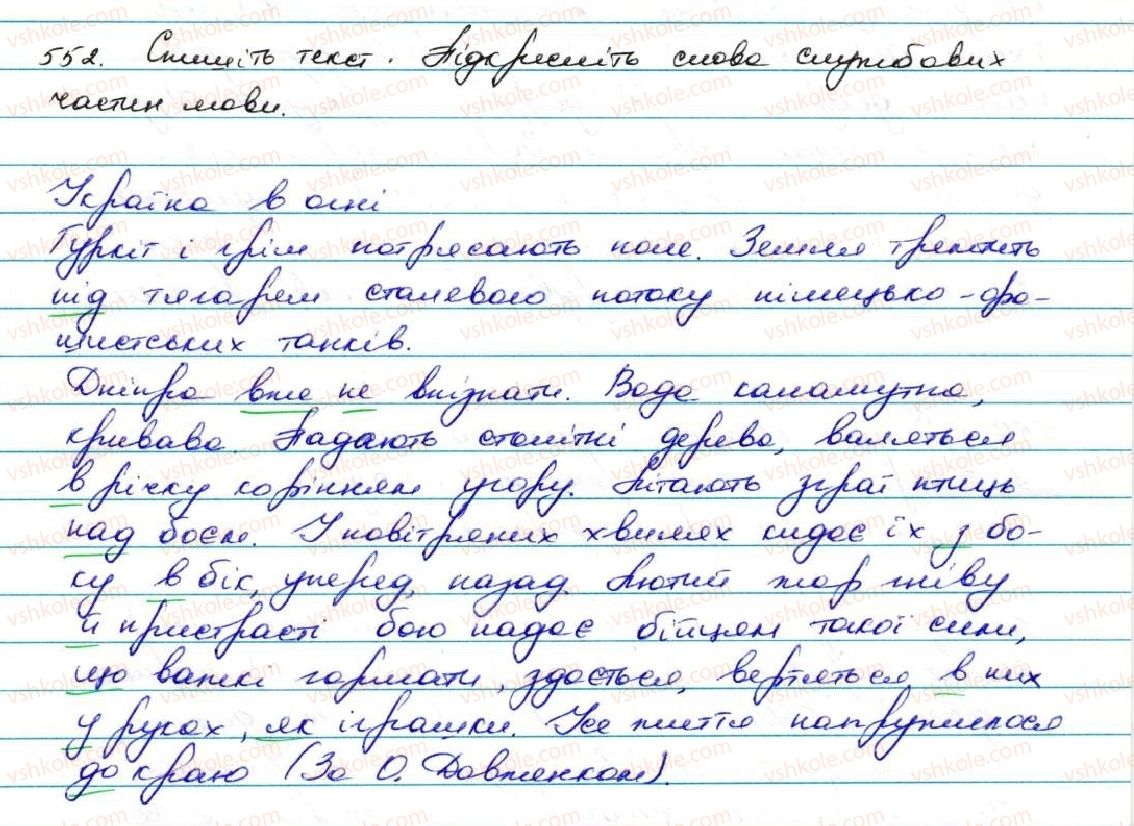 552. Спишіть текст. Підкресліть слова службових
частин мови.
Україна в огні
Гуркіт і грім потрясають поле. Земля трепетить
під тягарем сталевого потоку німецько-фа-
шистських танків.
Дніпра вже не впізнати. Вода каламутна,
кривава. Падають столітні дерева, валяться
в річку корінням угору. Літають зграї птиць
над боєм. І повітряних хвилях кидає їх з бо-
ку в бік, уперед, назад. Лютий жар гніву
й пристрасті бою надає бійцям такої сили,
що важкі гармати, здається, вертяться в них
у руках, як іграшки. Усе життя напружилося
до краю (За О. Довженком).